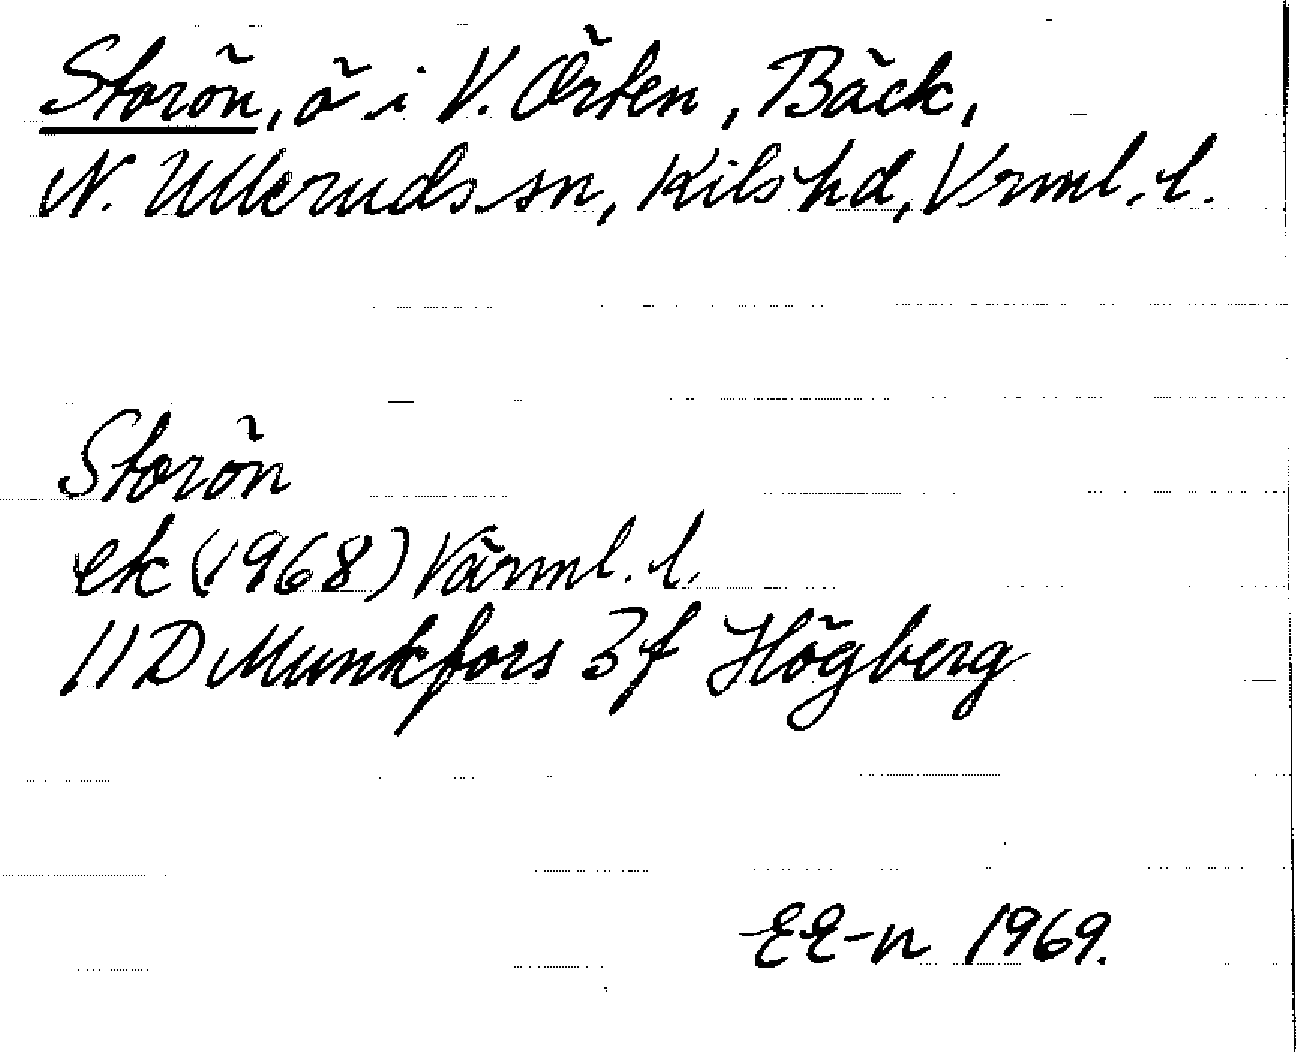 Storön, ö i V. Örten, Bäck,
N. Ulleruds sn, Kils hd, Vrml. l.
Storön
ek (1968) Värml. l.
11D Munkfors 3f Högberg
EE-n 1969.